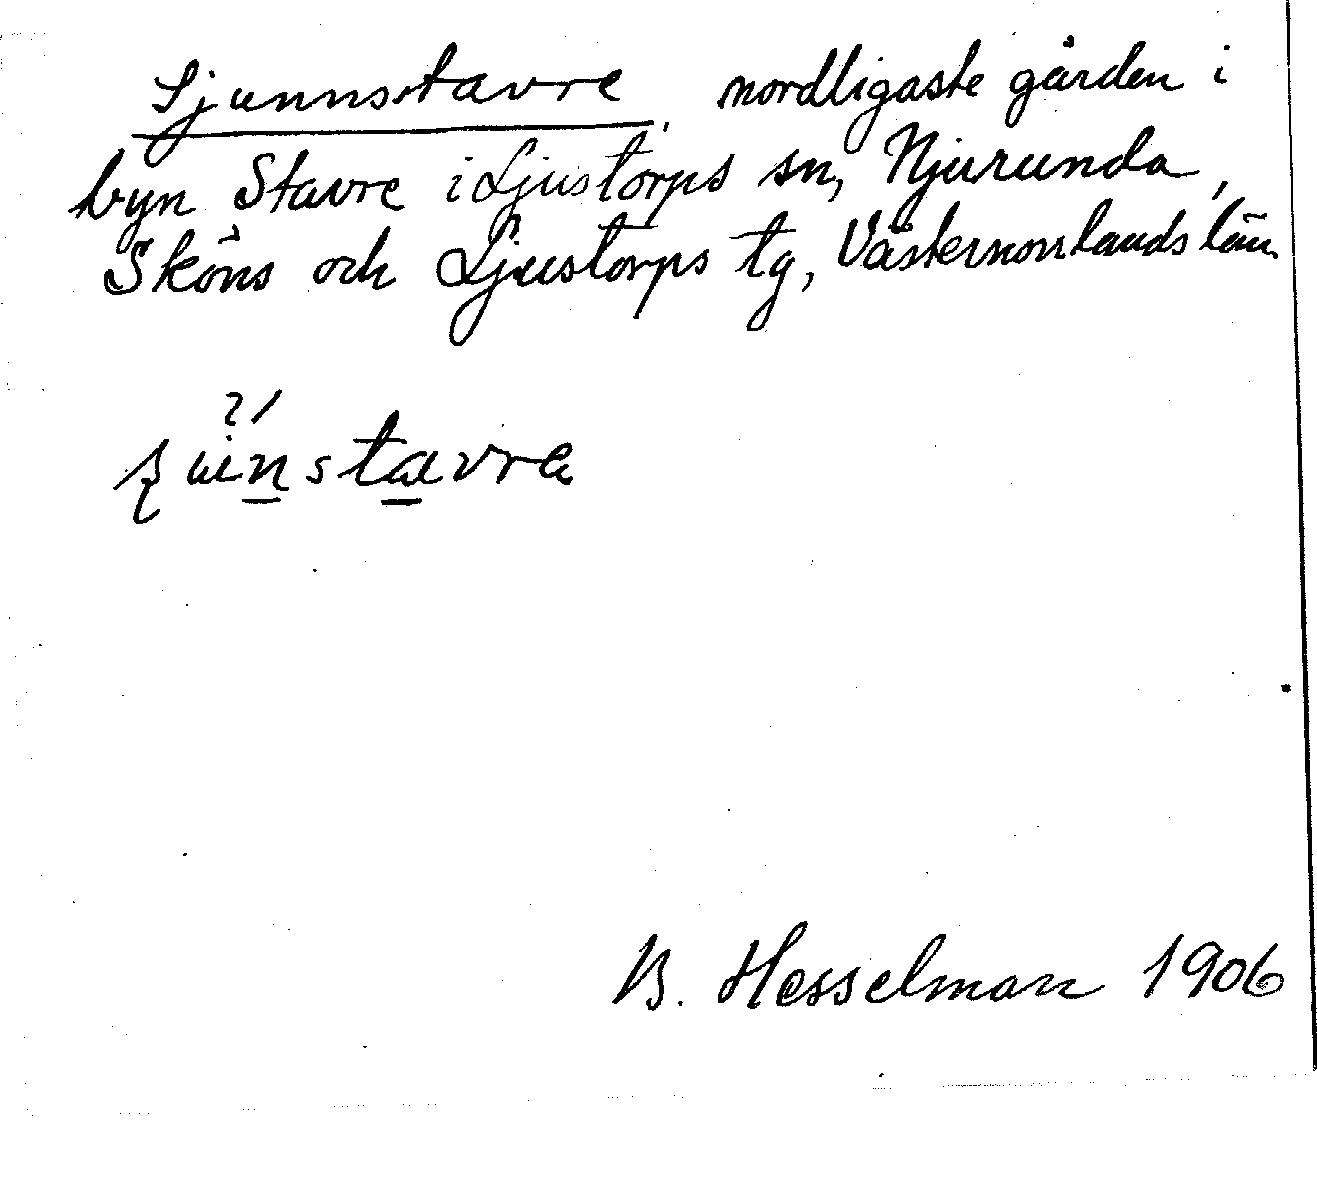 Sjunnsstavre, nordligaste gården i
byn Stavre i Ljustorps sn, Njurunda,
Sköns och Ljustorps tg, Västernorrlands län
B. Hesselman 1906